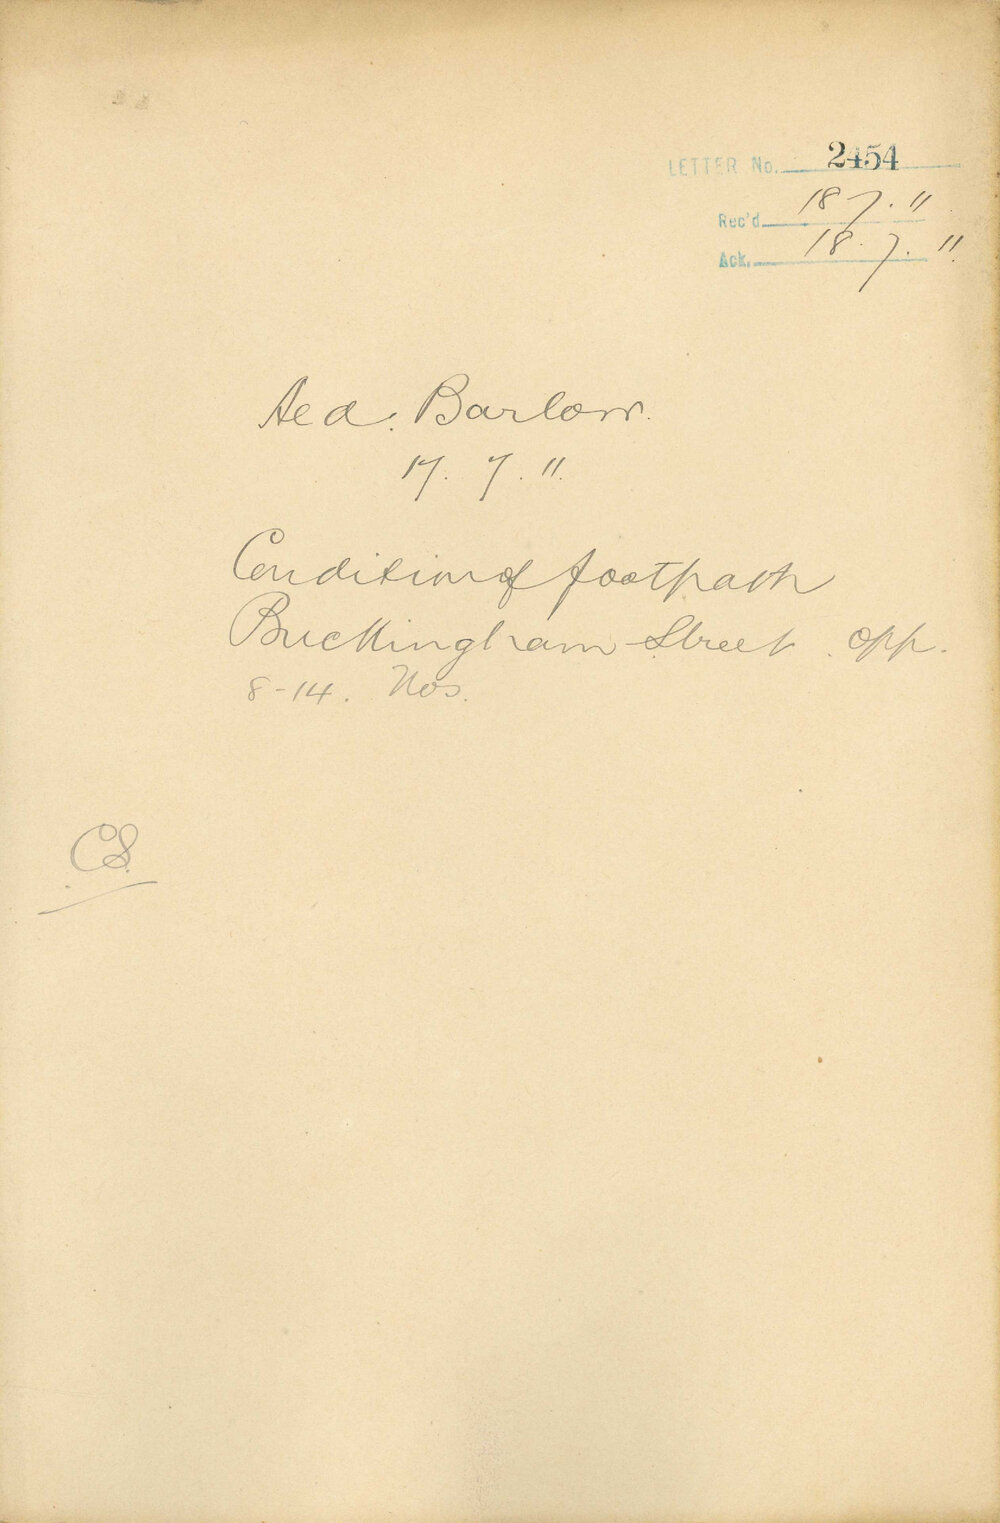 LETTER No. 2454
Rec'd 18 7. 11
Ack. 18. 7. 11.
Ald. Barlow.
17. 7. 11.
Condition of footpath
Buckingham Street opp.
8-14. Nos.
CS.